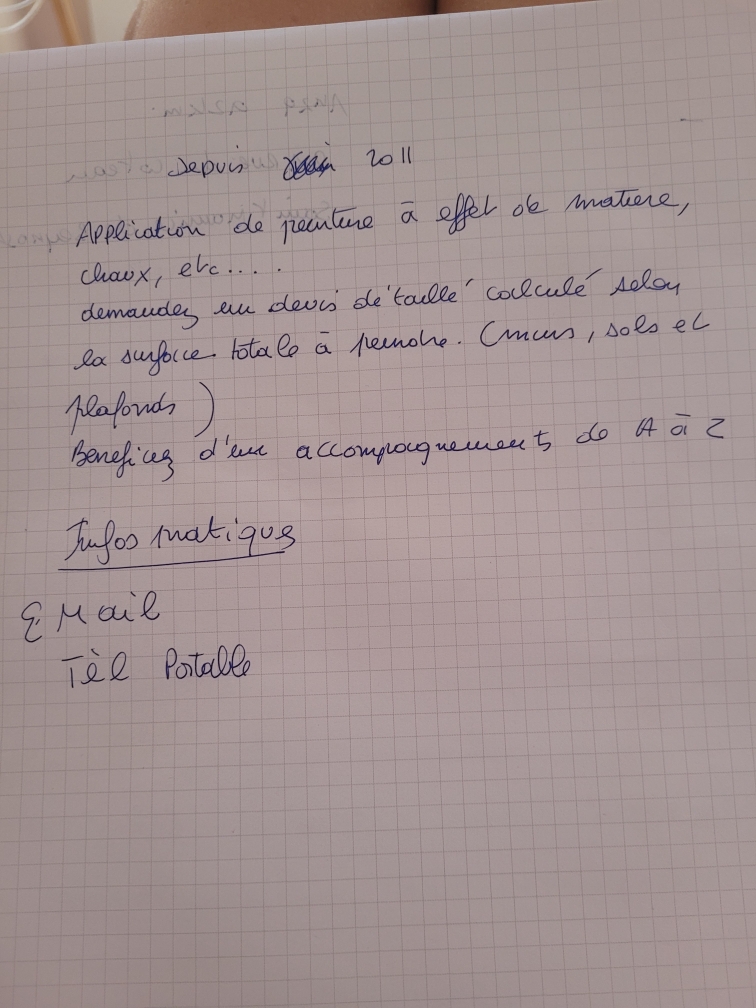 Depuis 2011
Application de peinture à effet de matiere,
chaux, etc....
demandez un devis détaillé calculé selon
la surface totale à peindre. (murs, sols et
plafonds)
Beneficiez d'un accompagnements de A à Z
Infos pratiques
EMail
Tèl Portable